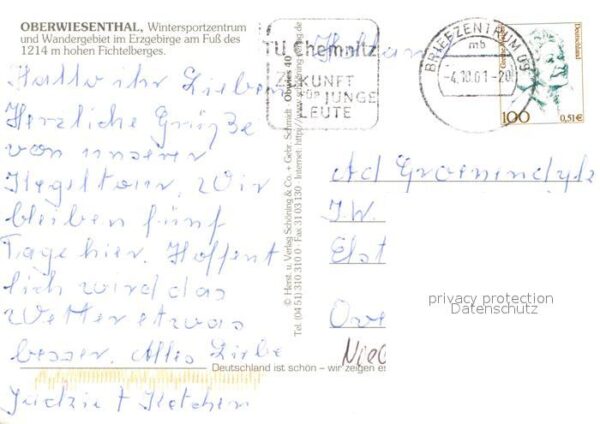 OBERWIESENTHAL, Wintersportzentrum
und Wandergebiet im Erzgebirge am Fuß des
1214 m hohen Fichtelberges.
Hallo ihr Lieben
Herzliche Grüße
von unserer
Kegeltour. Wir
bleiben fünf
Tage hier. Hoffent
lich wird das
Wetter etwas
besser. Alles Liebe
© Herst. u. Verlag Schöning & Co. + Gebr. Schmidt Obwies 40
Tel. (04 51) 310 310 0 · Fax 31 03 130 · Internet: http://www.schoening-verlag.de
TU Chemnitz
ZUKUNFT
FÜR JUNGE
LEUTE
BRIEFZENTRUM 09
mb
-4.10.01-20
Deutschland
100
0,51€
Ad
J.W.
Elst
Ove
privacy protection
Datenschutz
Deutschland ist schön – wir zeigen es